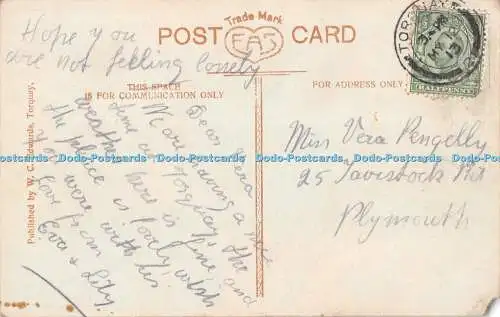 Hope you
are not feeling lonely
Trade Mark
POST CARD
EAS
THIS SPACE
IS FOR COMMUNICATION ONLY
FOR ADDRESS ONLY.
TORQUAY
HALFPENNY
Published by W. C. Edwards, Torquay.
Dear Vera
We are having a nice
time at Torquay, the
weather here is fine and
the place is lovely wish
you were with us
love from
Eva & Lily.
Miss Vera Pengelly
25 Tavistock Rd
Plymouth
Postcards-Online.com Postcards-Online.com Postcards-Online.com Postcards-Online.com Postcards-Online.com